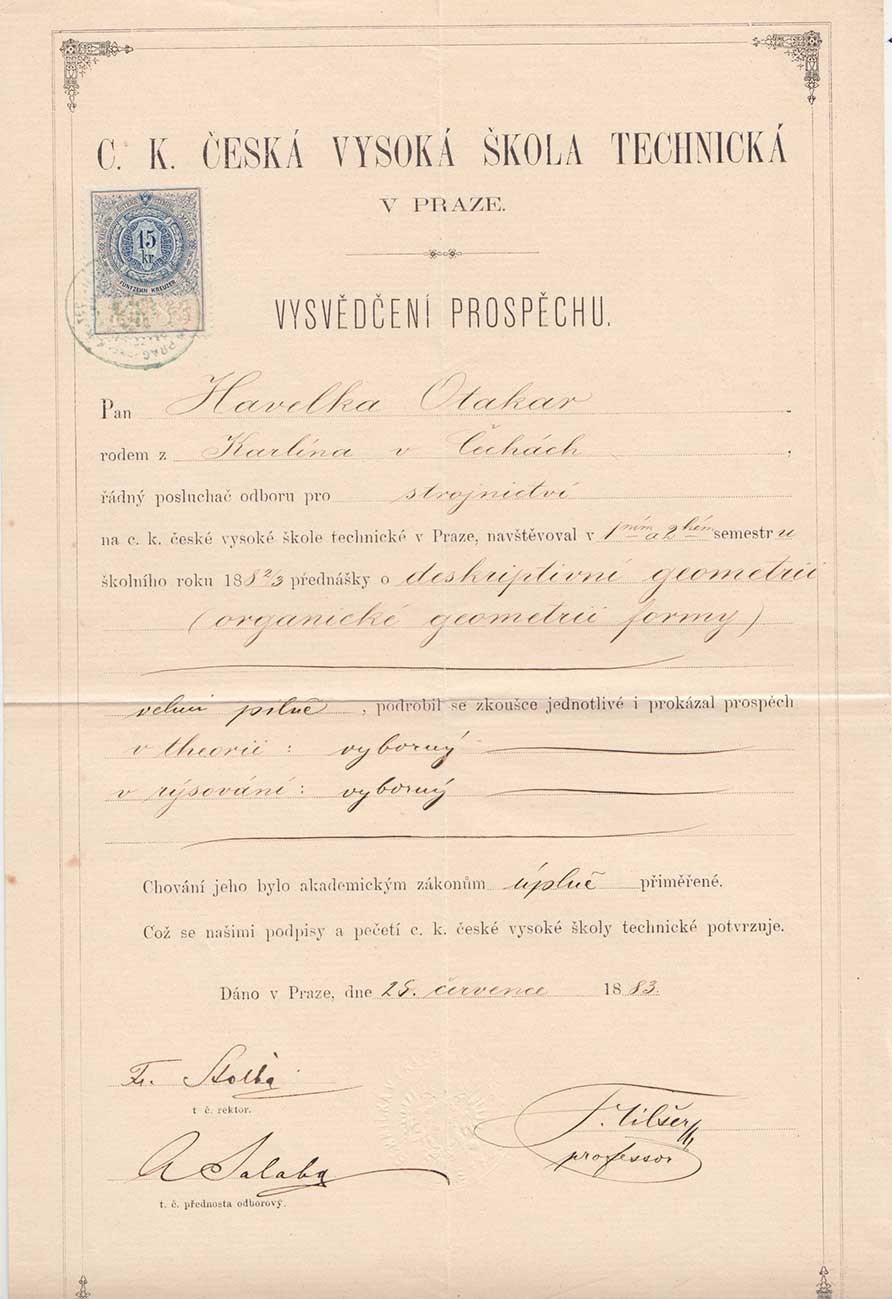 C. K. ČESKÁ VYSOKÁ ŠKOLA TECHNICKÁ
V PRAZE.
15
kr.
FÜNFZEHN KREUZER
PRAG
VYSVĚDČENÍ PROSPĚCHU.
Pan Havelka Otakar
rodem z Karlína v Čechách,
řádný posluchač odboru pro strojnictví
na c. k. české vysoké škole technické v Praze, navštěvoval v 1ním a 2hém semestru
školního roku 188 2/3 přednášky o deskriptivní geometrii
(organické geometrii formy)
velmi pilně, podrobil se zkoušce jednotlivé i prokázal prospěch
v theorii: výborný
v rýsování: výborný
Chování jeho bylo akademickým zákonům úplně přiměřené.
Což se našimi podpisy a pečetí c. k. české vysoké školy technické potvrzuje.
Dáno v Praze, dne 25. července 1883.
Fr. Štolba
t č. rektor.
F. Tilšer
professor
A Salaba
t. č. přednosta odborový.